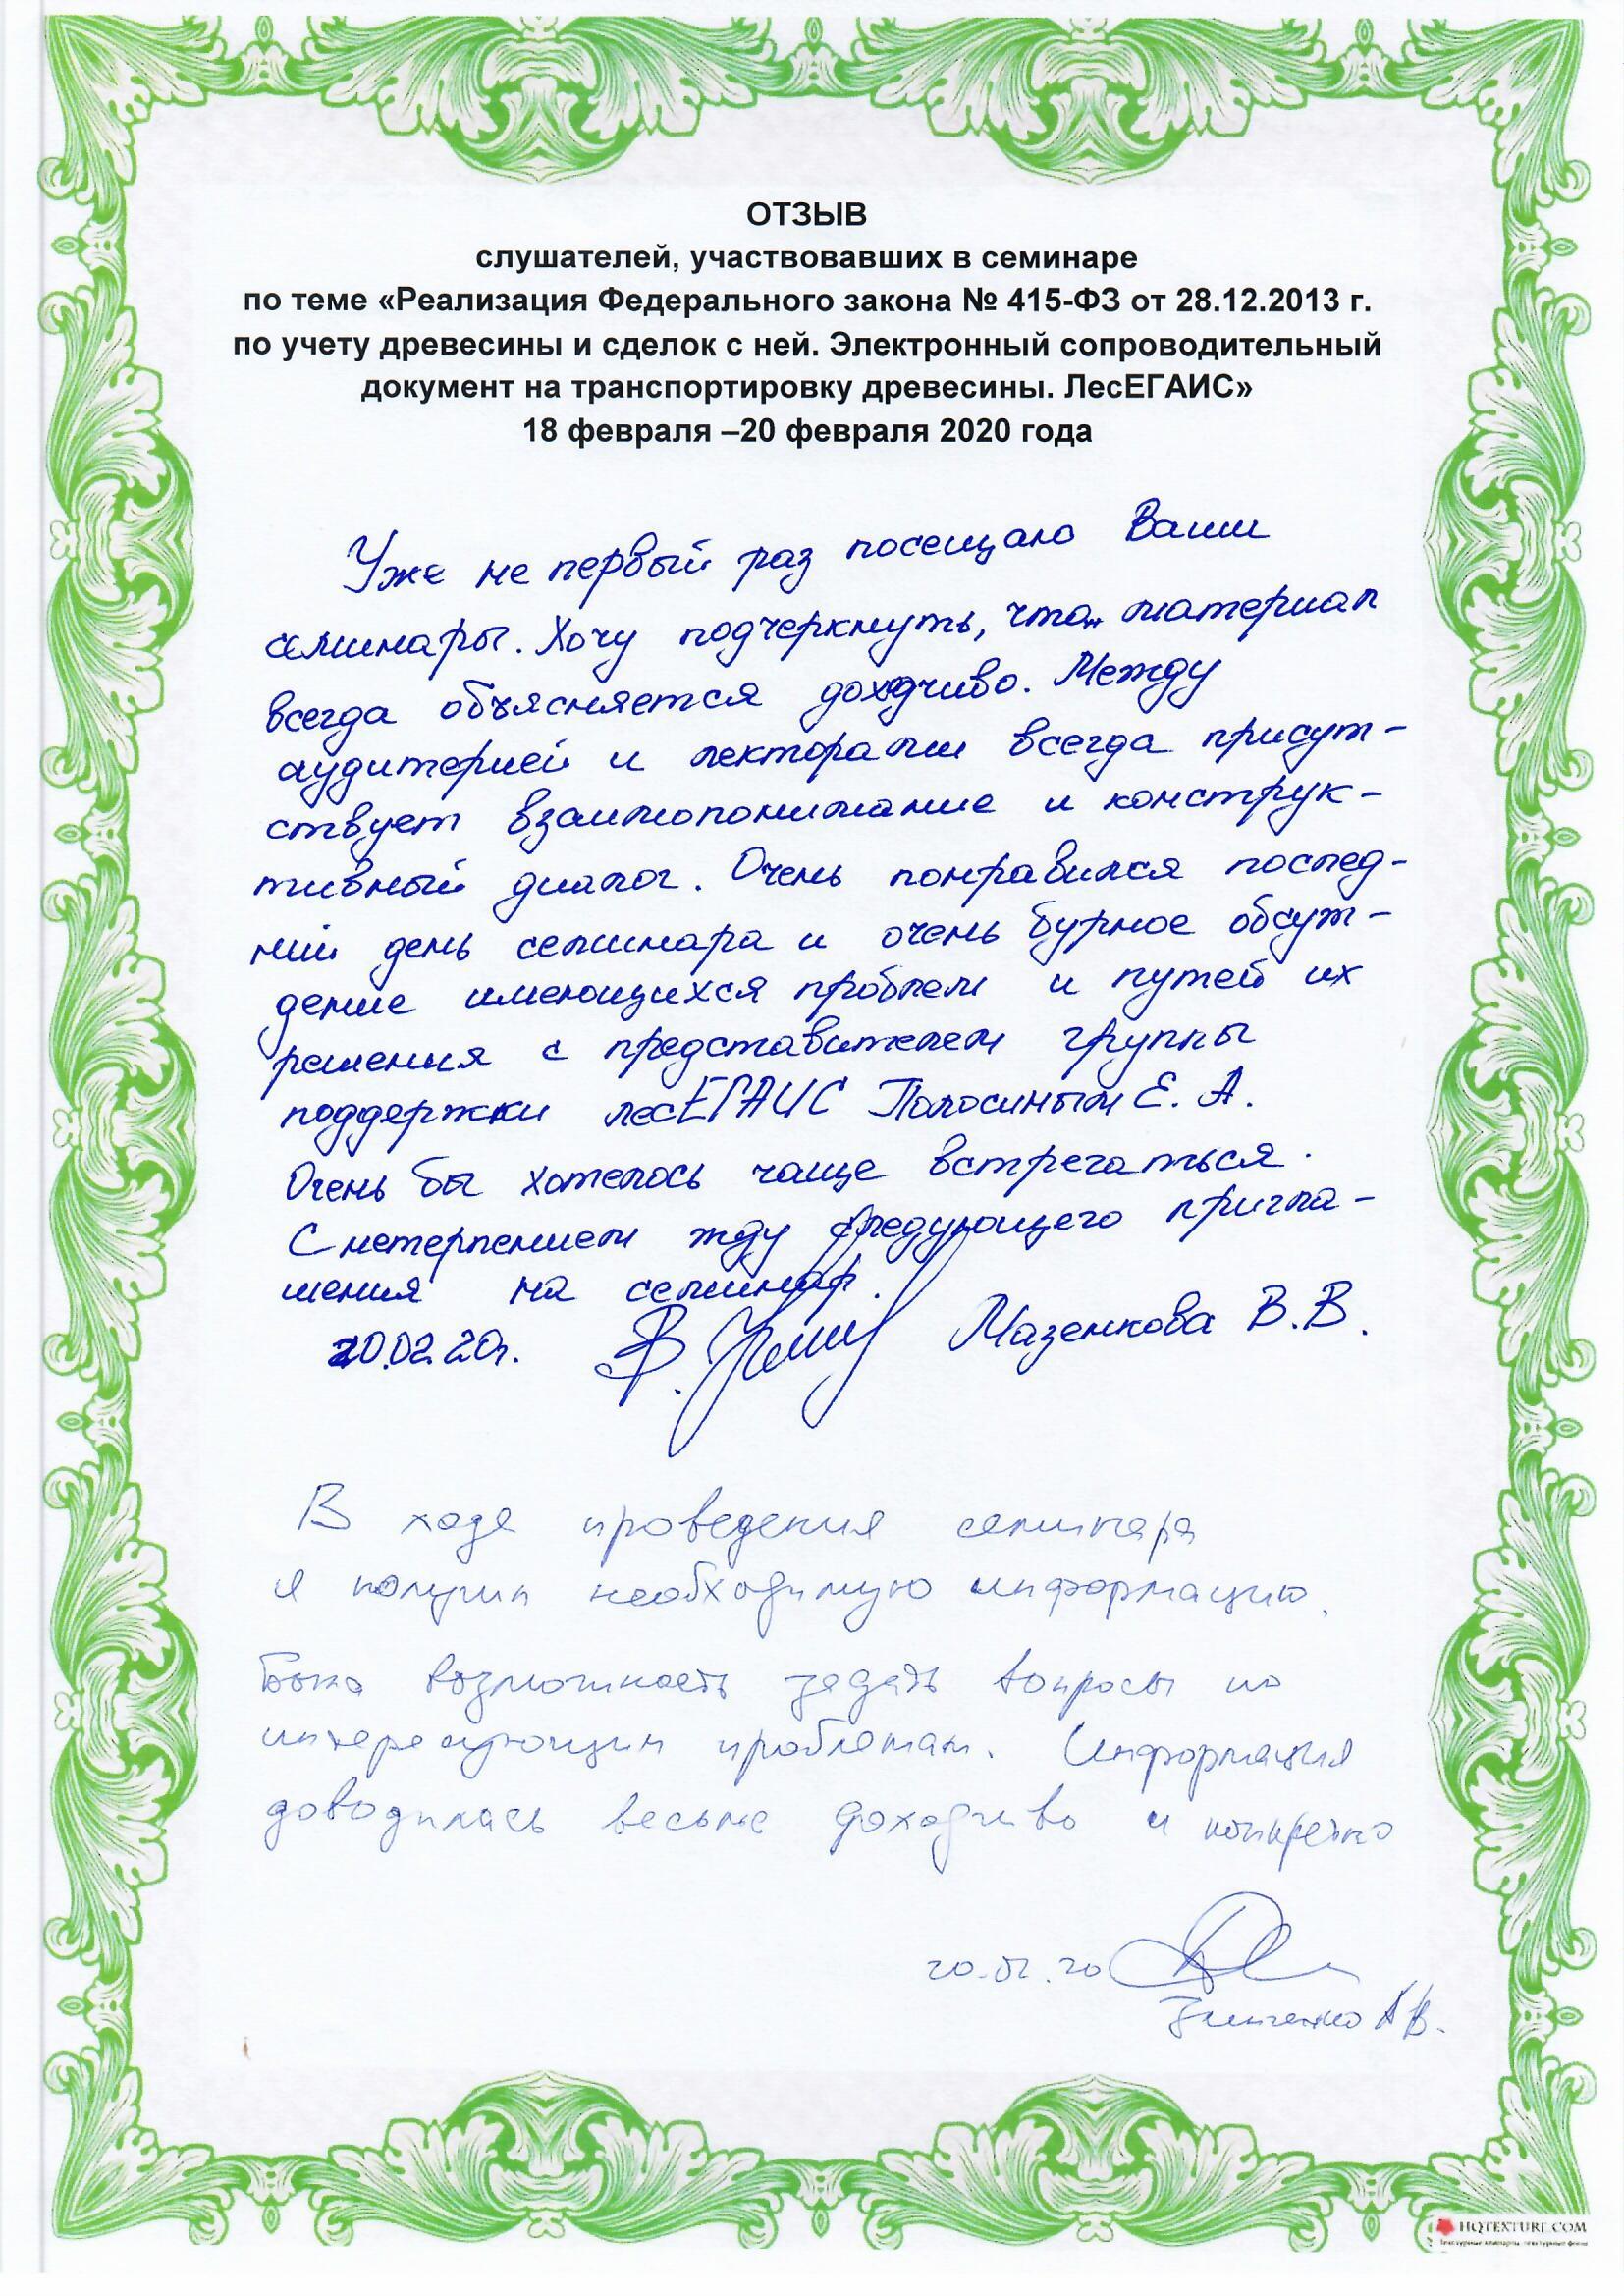 ОТЗЫВ
слушателей, участвовавших в семинаре
по теме «Реализация Федерального закона № 415-ФЗ от 28.12.2013 г.
по учету древесины и сделок с ней. Электронный сопроводительный
документ на транспортировку древесины. ЛесЕГАИС»
18 февраля –20 февраля 2020 года
Уже не первый раз посещаю Ваши
семинары. Хочу подчеркнуть, что материал
всегда объясняется доходчиво. Между
аудиторией и лекторами всегда присут-
ствует взаимопонимание и конструк-
тивный диалог. Очень понравился послед-
ний день семинара и очень бурное обсуж-
дение имеющихся проблем и путей их
решения с представителем группы
поддержки лесЕГАИС Полосиным Е. А.
Очень бы хотелось чаще встречаться.
С нетерпением жду следующего пригла-
шения на семинар.
20.02.20г. Мазенкова В.В.
В ходе проведения семинара
я получил необходимую информацию.
Была возможность задать вопросы по
интересующим проблемам. Информация
доводилась весьма доходчиво и конкретно
20.02.20
Зинченко А В.
HQTEXTURE.COM